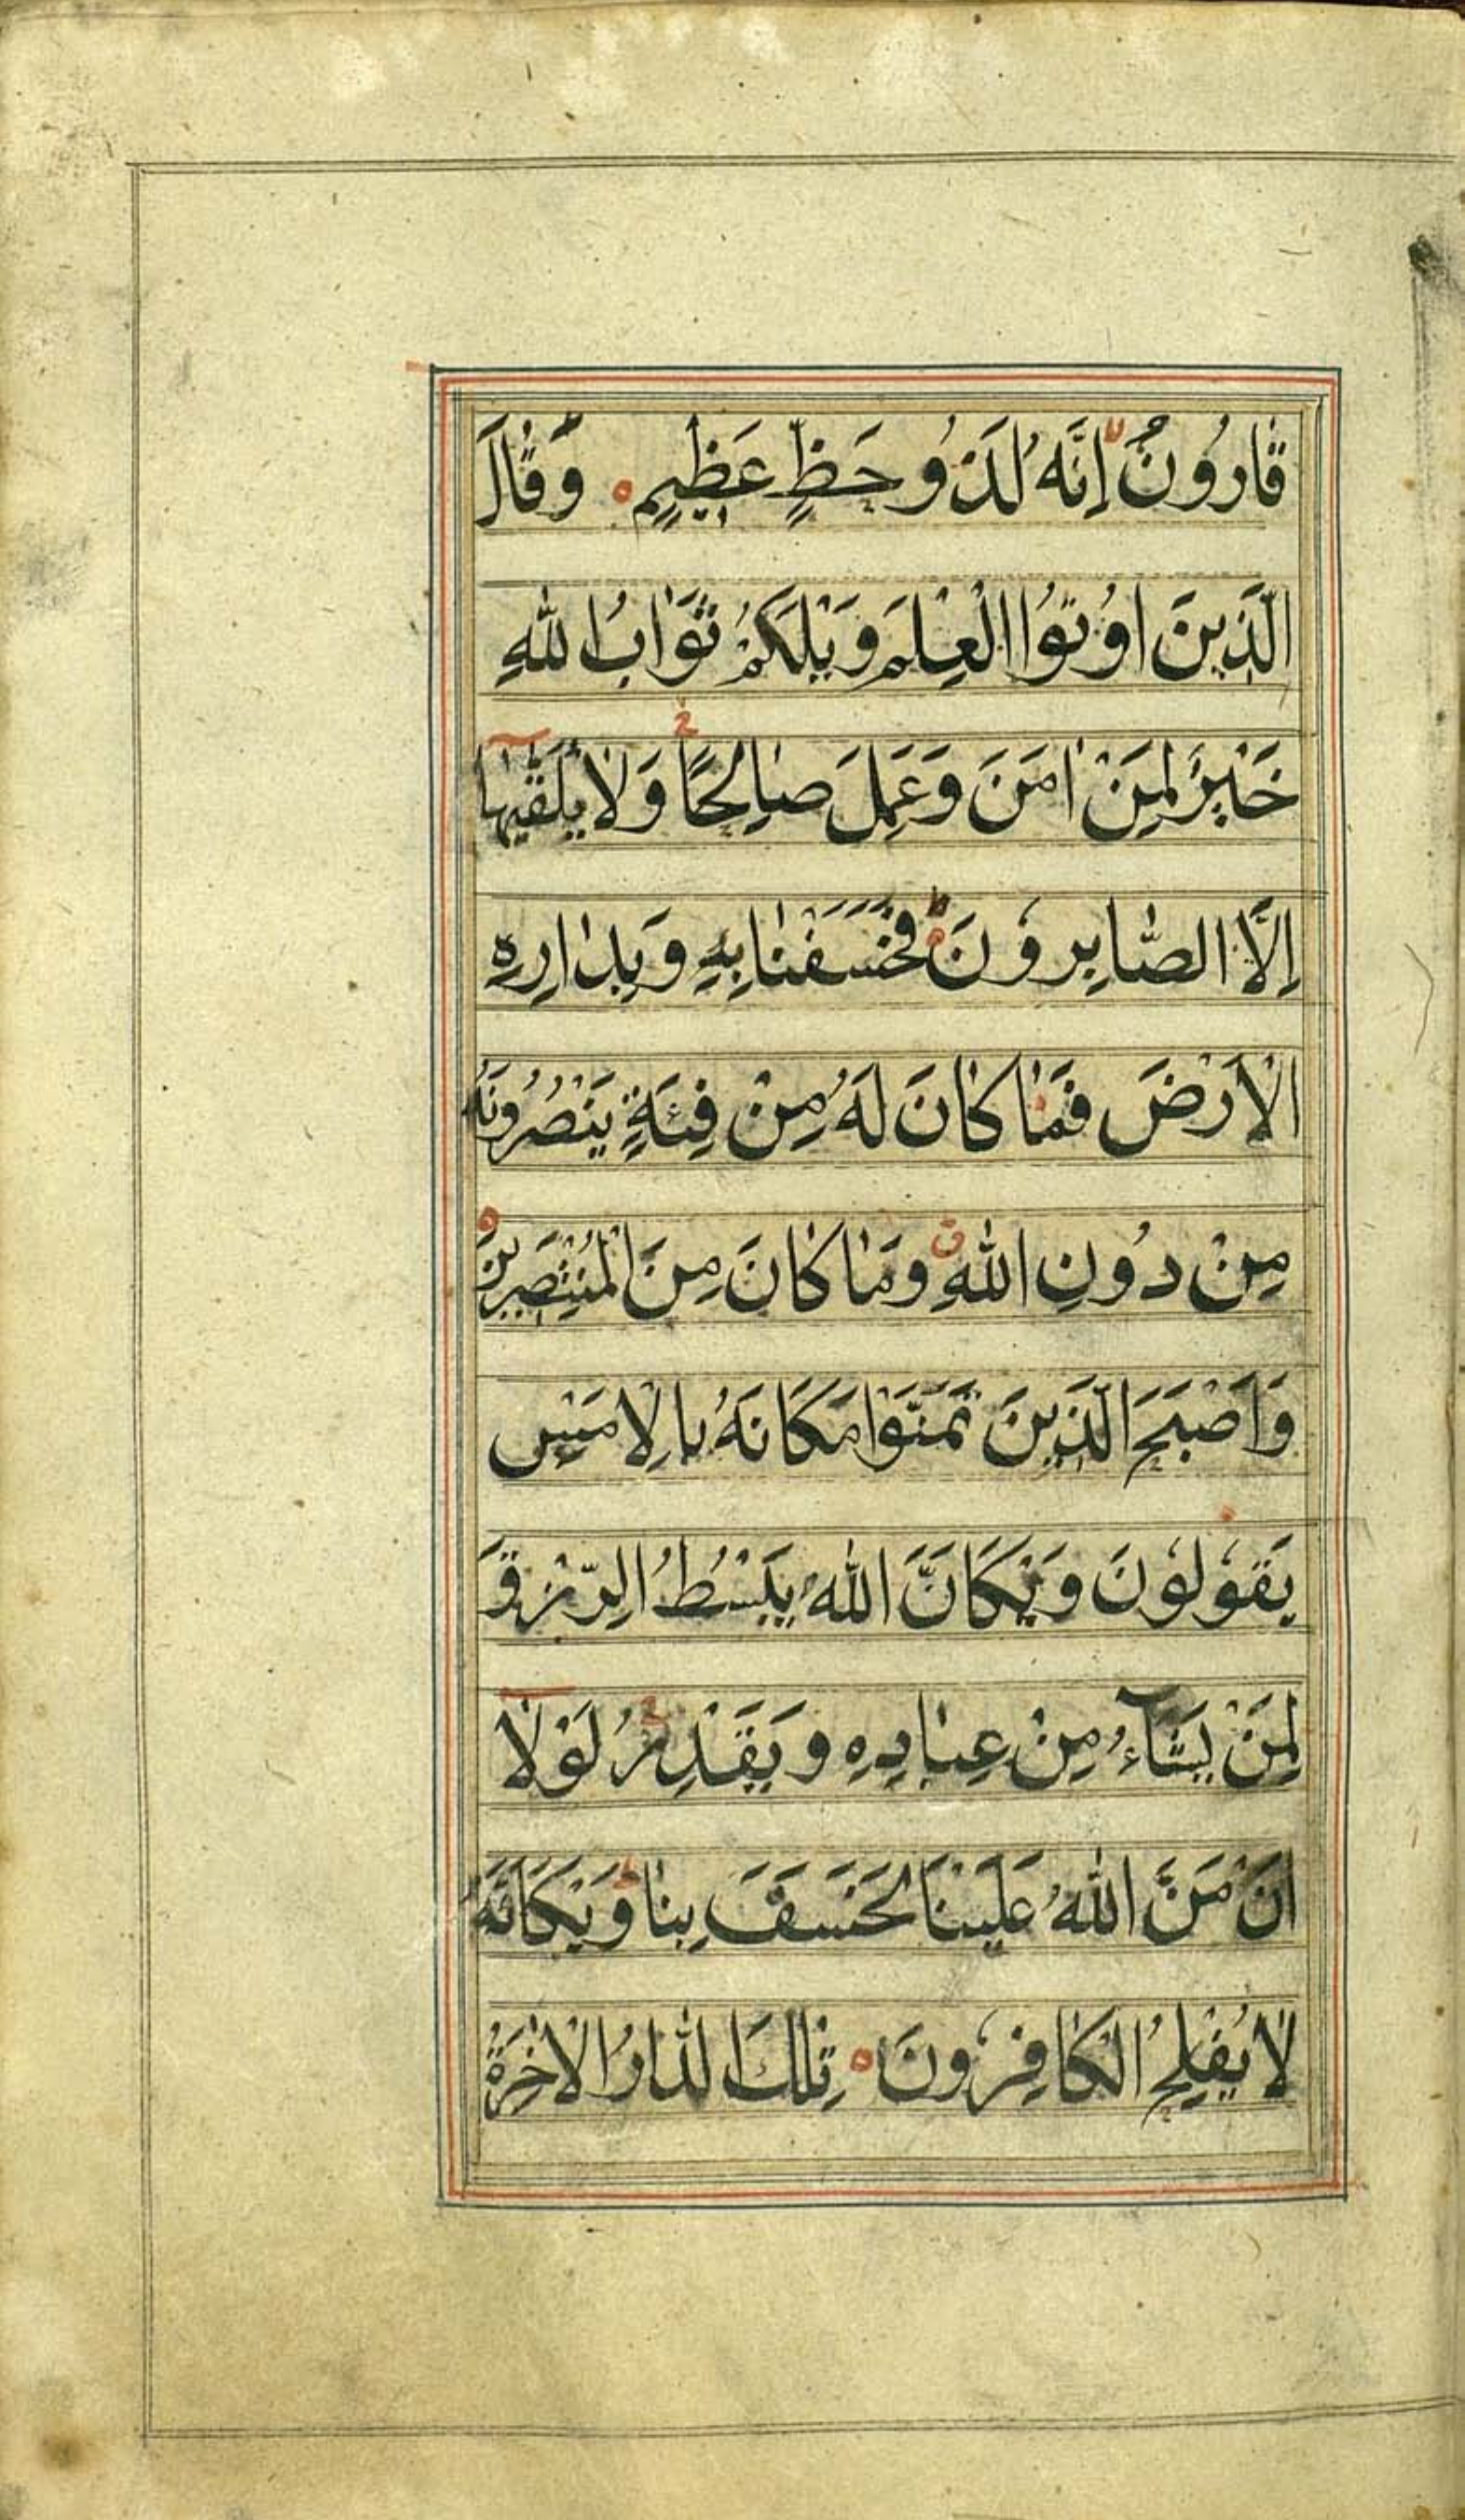 قَارُونُ اِنَّهُ لَذُو حَظٍّ عَظِيمٍ وَقَالَ
الَّذِينَ اُوتُوا الْعِلْمَ وَيْلَكُمْ ثَوَابُ اللهِ
خَيْرٌ لِمَنْ اٰمَنَ وَعَمِلَ صَالِحًا وَلَا يُلَقّٰيهَا
اِلَّا الصَّابِرُونَ فَخَسَفْنَا بِهِ وَبِدَارِهِ
الْاَرْضَ فَمَا كَانَ لَهُ مِنْ فِئَةٍ يَنْصُرُونَهُ
مِنْ دُونِ اللهِ وَمَا كَانَ مِنَ الْمُنْتَصِرِينَ
وَاَصْبَحَ الَّذِينَ تَمَنَّوْا مَكَانَهُ بِالْاَمْسِ
يَقُولُونَ وَيْكَاَنَّ اللهَ يَبْسُطُ الرِّزْقَ
لِمَنْ يَشَآءُ مِنْ عِبَادِهِ وَيَقْدِرُ لَوْلَا
اَنْ مَنَّ اللهُ عَلَيْنَا لَخَسَفَ بِنَا وَيْكَاَنَّهُ
لَا يُفْلِحُ الْكَافِرُونَ تِلْكَ الدَّارُ الْاٰخِرَةُ